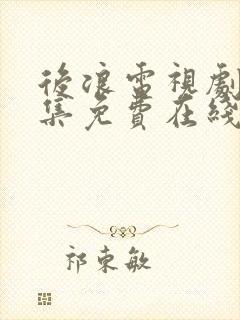 後浪雷視劇
集免費在綫
祁東敏